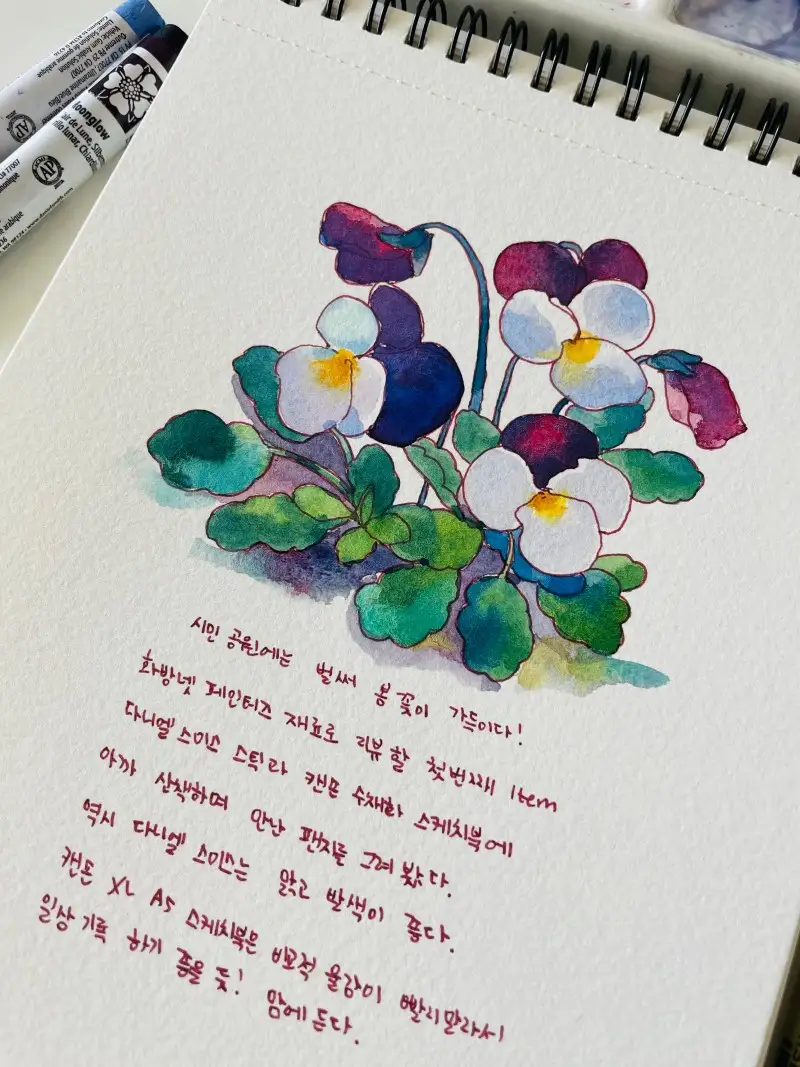 Ultramarine Blue
Moonglow
AP
AP
시민 공원에는 벌써 봄 꽃이 가득이다!
화방넷 페인터즈 재료로 리뷰할 첫번째 item
다니엘스미스 스틱과 캔손 수채화 스케치북에
아까 산책하며 만난 팬지를 그려 봤다.
역시 다니엘 스미스는 맑고 발색이 좋다.
캔손 XL A5 스케치북은 비교적 물감이 빨리말라서
일상기록 하기 좋을 듯! 맘에든다.